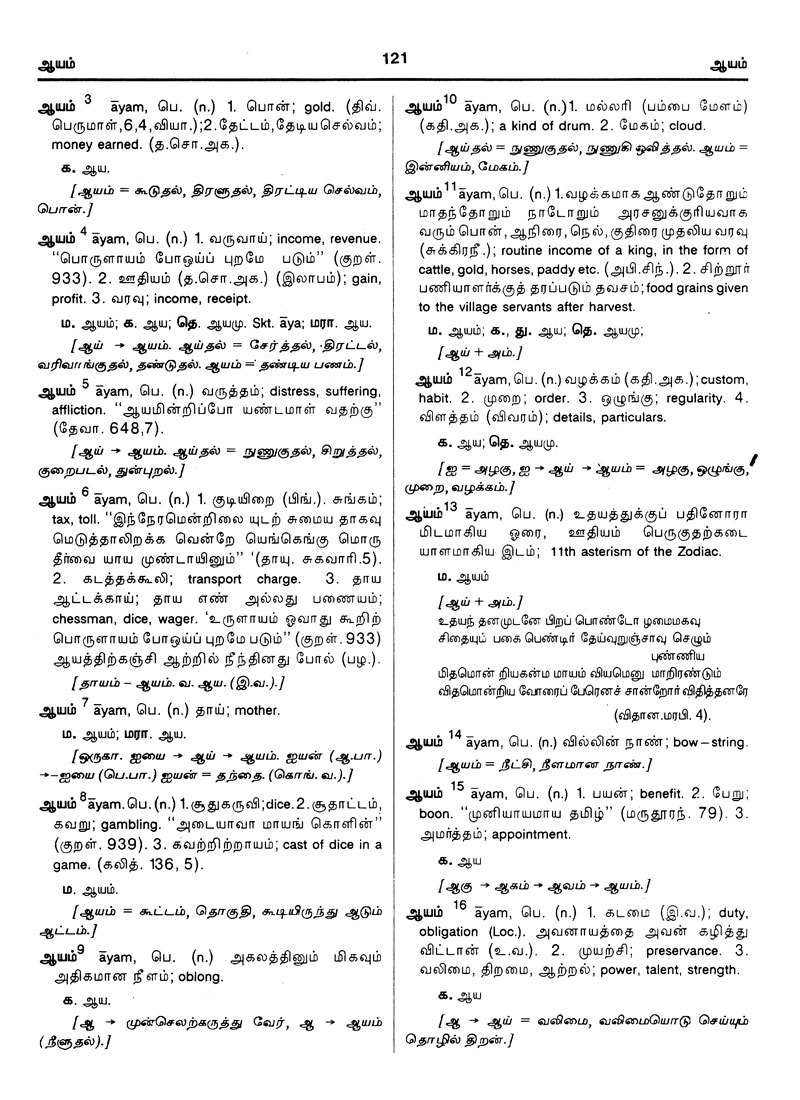 ஆயம்
121
ஆயம்
ஆயம் 3 āyam, பெ. (n.) 1. பொன்; gold. (திவ்.
பெருமாள்,6,4,வியா.);2.தேட்டம்,தேடியசெல்வம்;
money earned. (த.சொ.அக.).
க. ஆய.
[ஆயம் = கூடுதல், திரளுதல், திரட்டிய செல்வம்,
பொன்.]
ஆயம் 4 āyam, பெ. (n.) 1. வருவாய்; income, revenue.
“பொருளாயம் போஒய்ப் புறமே படும்” (குறள்.
933). 2. ஊதியம் (த.சொ.அக) (இலாபம்); gain,
profit. 3. வரவு; income, receipt.
ம. ஆயம்; க. ஆய; தெ. ஆயமு. Skt. āya; மரா. ஆய.
[ஆய் → ஆயம். ஆய்தல் = சேர்த்தல், திரட்டல்,
வரிவாங்குதல், தண்டுதல். ஆயம் = தண்டிய பணம்.]
ஆயம் 5 āyam, பெ. (n.) வருத்தம்; distress, suffering,
affliction. “ஆயமின்றிப்போ யண்டமாள் வதற்கு”
(தேவா. 648,7).
[ஆய் → ஆயம். ஆய்தல் = நுணுகுதல், சிறுத்தல்,
குறைபடல், துன்புறல்.]
ஆயம் 6 āyam, பெ. (n.) 1. குடியிறை (பிங்.). சுங்கம்;
tax, toll. “இந்நேரமென்றிலை யுடற் சுமைய தாகவு
மெடுத்தாலிறக்க வென்றே யெங்கெங்கு மொரு
தீர்வை யாய முண்டாயினும்” ‘(தாயு. சுகவாரி.5).
2. கடத்தக்கூலி; transport charge. 3. தாய
ஆட்டக்காய்; தாய எண் அல்லது பணையம்;
chessman, dice, wager. ‘உருளாயம் ஓவாது கூறிற்
பொருளாயம் போஒய்ப் புறமே படும்” (குறள்.933)
ஆயத்திற்கஞ்சி ஆற்றில் நீந்தினது போல் (பழ.).
[தாயம் – ஆயம். வ. ஆய. (இ.வ.).]
ஆயம் 7 āyam, பெ. (n.) தாய்; mother.
ம. ஆயம்; மரா. ஆய.
[ஒருகா. ஐயை → ஆய் → ஆயம். ஐயன் (ஆ.பா.)
→–ஐயை (பெ.பா.) ஐயன் = தந்தை. (கொங். வ.).]
ஆயம் 8āyam.பெ.(n.) 1.சூதுகருவி;dice.2.சூதாட்டம்,
கவறு; gambling. “அடையாவா மாயங் கொளின்”
(குறள். 939). 3. கவற்றிற்றாயம்; cast of dice in a
game. (கலித். 136, 5).
ம. ஆயம்.
[ஆயம் = கூட்டம், தொகுதி, கூடியிருந்து ஆடும்
ஆட்டம்.]
ஆயம்9 āyam, பெ. (n.) அகலத்தினும் மிகவும்
அதிகமான நீளம்; oblong.
க. ஆய.
[ஆ → முன்செலற்கருத்து வேர், ஆ → ஆயம்
(நீளுதல்).]
ஆயம்10 āyam, பெ. (n.)1. மல்லரி (பம்பை மேளம்)
(கதி.அக.); a kind of drum. 2. மேகம்; cloud.
[ஆய்தல் = நுணுகுதல், நுணுகி ஒலித்தல். ஆயம் =
இன்னியம், மேகம்.]
ஆயம்11āyam, பெ. (n.) 1.வழக்கமாக ஆண்டுதோறும்
மாதந்தோறும் நாடோறும் அரசனுக்குரியவாக
வரும் பொன், ஆநிரை, நெல், குதிரை முதலிய வரவு
(சுக்கிரநீ.); routine income of a king, in the form of
cattle, gold, horses, paddy etc. (அபி.சிந்.). 2. சிற்றூர்
பணியாளர்க்குத் தரப்படும் தவசம்; food grains given
to the village servants after harvest.
ம. ஆயம்; க., து. ஆய; தெ. ஆயமு;
[ஆய் + அம்.]
ஆயம் 12āyam, பெ. (n.) வழக்கம் (கதி.அக.);custom,
habit. 2. முறை; order. 3. ஒழுங்கு; regularity. 4.
விளத்தம் (விவரம்); details, particulars.
க. ஆய; தெ. ஆயமு.
[ஐ = அழகு, ஐ → ஆய் → ஆயம் = அழகு, ஒழுங்கு,
முறை, வழக்கம்.]
ஆயம்13 āyam, பெ. (n.) உதயத்துக்குப் பதினோரா
மிடமாகிய ஓரை, ஊதியம் பெருகுதற்கடை
யாளமாகிய இடம்; 11th asterism of the Zodiac.
ம. ஆயம்
[ஆய் + அம்.]
உதயந் தனமுடனே பிறப் பொண்டோ ழமைமகவு
சிதையுப் பகை பெண்டிர் தேய்வுறுஞ்சாவு செழும்
புண்ணிய
மிதமொன் றியகன்ம மாயம் வியமெனு மாறிரண்டும்
விதமொன்றிய வோரைப் பேரெனச் சான்றோர் விதித்தனரே
(விதான.மரபி. 4).
ஆயம் 14 āyam, பெ. (n.) வில்லின் நாண்; bow–string.
[ஆயம் = நீட்சி, நீளமான நாண்.]
ஆயம் 15 āyam, பெ. (n.) 1. பயன்; benefit. 2. பேறு;
boon. “முனியாயமாய தமிழ்” (மருதூரந். 79). 3.
அமர்த்தம்; appointment.
க. ஆய
[ஆகு → ஆகம் → ஆவம் → ஆயம்.]
ஆயம் 16 āyam, பெ. (n.) 1. கடமை (இ.வ.); duty,
obligation (Loc.). அவனாயத்தை அவன் கழித்து
விட்டான் (உ.வ.). 2. முயற்சி; preservance. 3.
வலிமை, திறமை, ஆற்றல்; power, talent, strength.
க. ஆய
[ஆ → ஆய் = வலிமை, வலிமையொடு செய்யும்
தொழில் திறன்.]